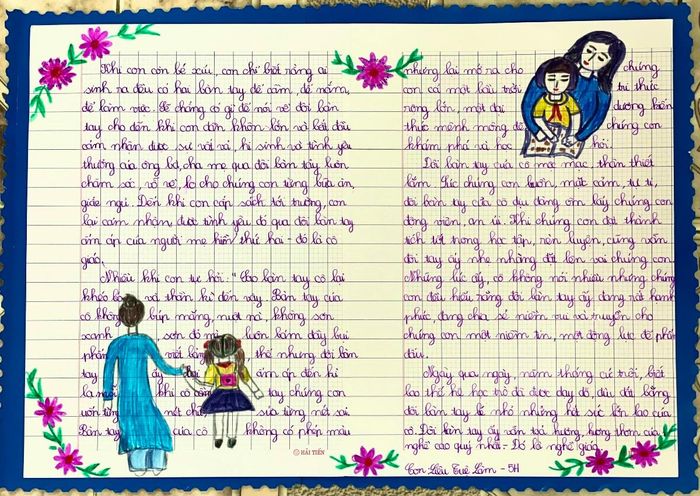 Khi con còn bé xíu, con chỉ biết rằng ai
sinh ra đều có hai bàn tay để cầm, để nắm,
để làm việc. Để chẳng có gì để nói về đôi bàn
tay cho đến khi con dần khôn lớn và bắt đầu
cảm nhận được sự vất vả, hi sinh và tình yêu
thương của ông bà, cha mẹ qua đôi bàn tay luôn
chăm sóc, vỗ về, lo cho chúng con từng bữa ăn,
giấc ngủ. Đến khi con cắp sách tới trường, con
lại cảm nhận được tình yêu đó qua đôi bàn tay
ấm áp của người mẹ hiền thứ hai - đó là cô
giáo.
Nhiều khi con tự hỏi: "Sao bàn tay cô lại
khéo léo và thần kì đến vậy. Bàn tay của
cô không búp măng, nuột nà, không sơn
xanh đỏ luôn bám đầy bụi
phấn viết bảng thế nhưng đôi bàn
tay ấy lại ấm áp đến kì
lạ mỗi khi cô cầm tay chúng con
uốn từng nét chữ sửa từng nét sai.
Bàn tay của cô không có phép màu
HẢI TIẾN
nhưng lại mở ra cho chúng
con cả một bầu trời tri thức
rộng lớn, một đại dương kiến
thức mênh mông để chúng con
khám phá và học hỏi.
Đôi bàn tay của cô mộc mạc, thân thiết
lắm. Lúc chúng con buồn, mất cảm, tự ti,
đôi bàn tay của cô dịu dàng ôm lấy chúng con
động viên, an ủi. Khi chúng con đạt thành
tích tốt trong học tập, rèn luyện, cũng vẫn
đôi tay ấy nhẹ nhàng đặt lên vai chúng con.
Những lúc ấy, cô không nói nhiều nhưng chúng
con đều hiểu rằng đôi bàn tay ấy đang rất hạnh
phúc, đang chia sẻ niềm vui và truyền cho
chúng con một niềm tin, một động lực để phấn
đấu.
Ngày qua ngày, năm tháng cứ trôi, biết
bao thế hệ học trò đã được dạy dỗ, dìu dắt bằng
đôi bàn tay bé nhỏ nhưng hết sức lớn lao của
cô. Đôi bàn tay ấy vẫn toả hương, hương thơm của
nghề cao quý nhất - Đó là nghề giáo.
Con Liêu Tuệ Lâm - 5H